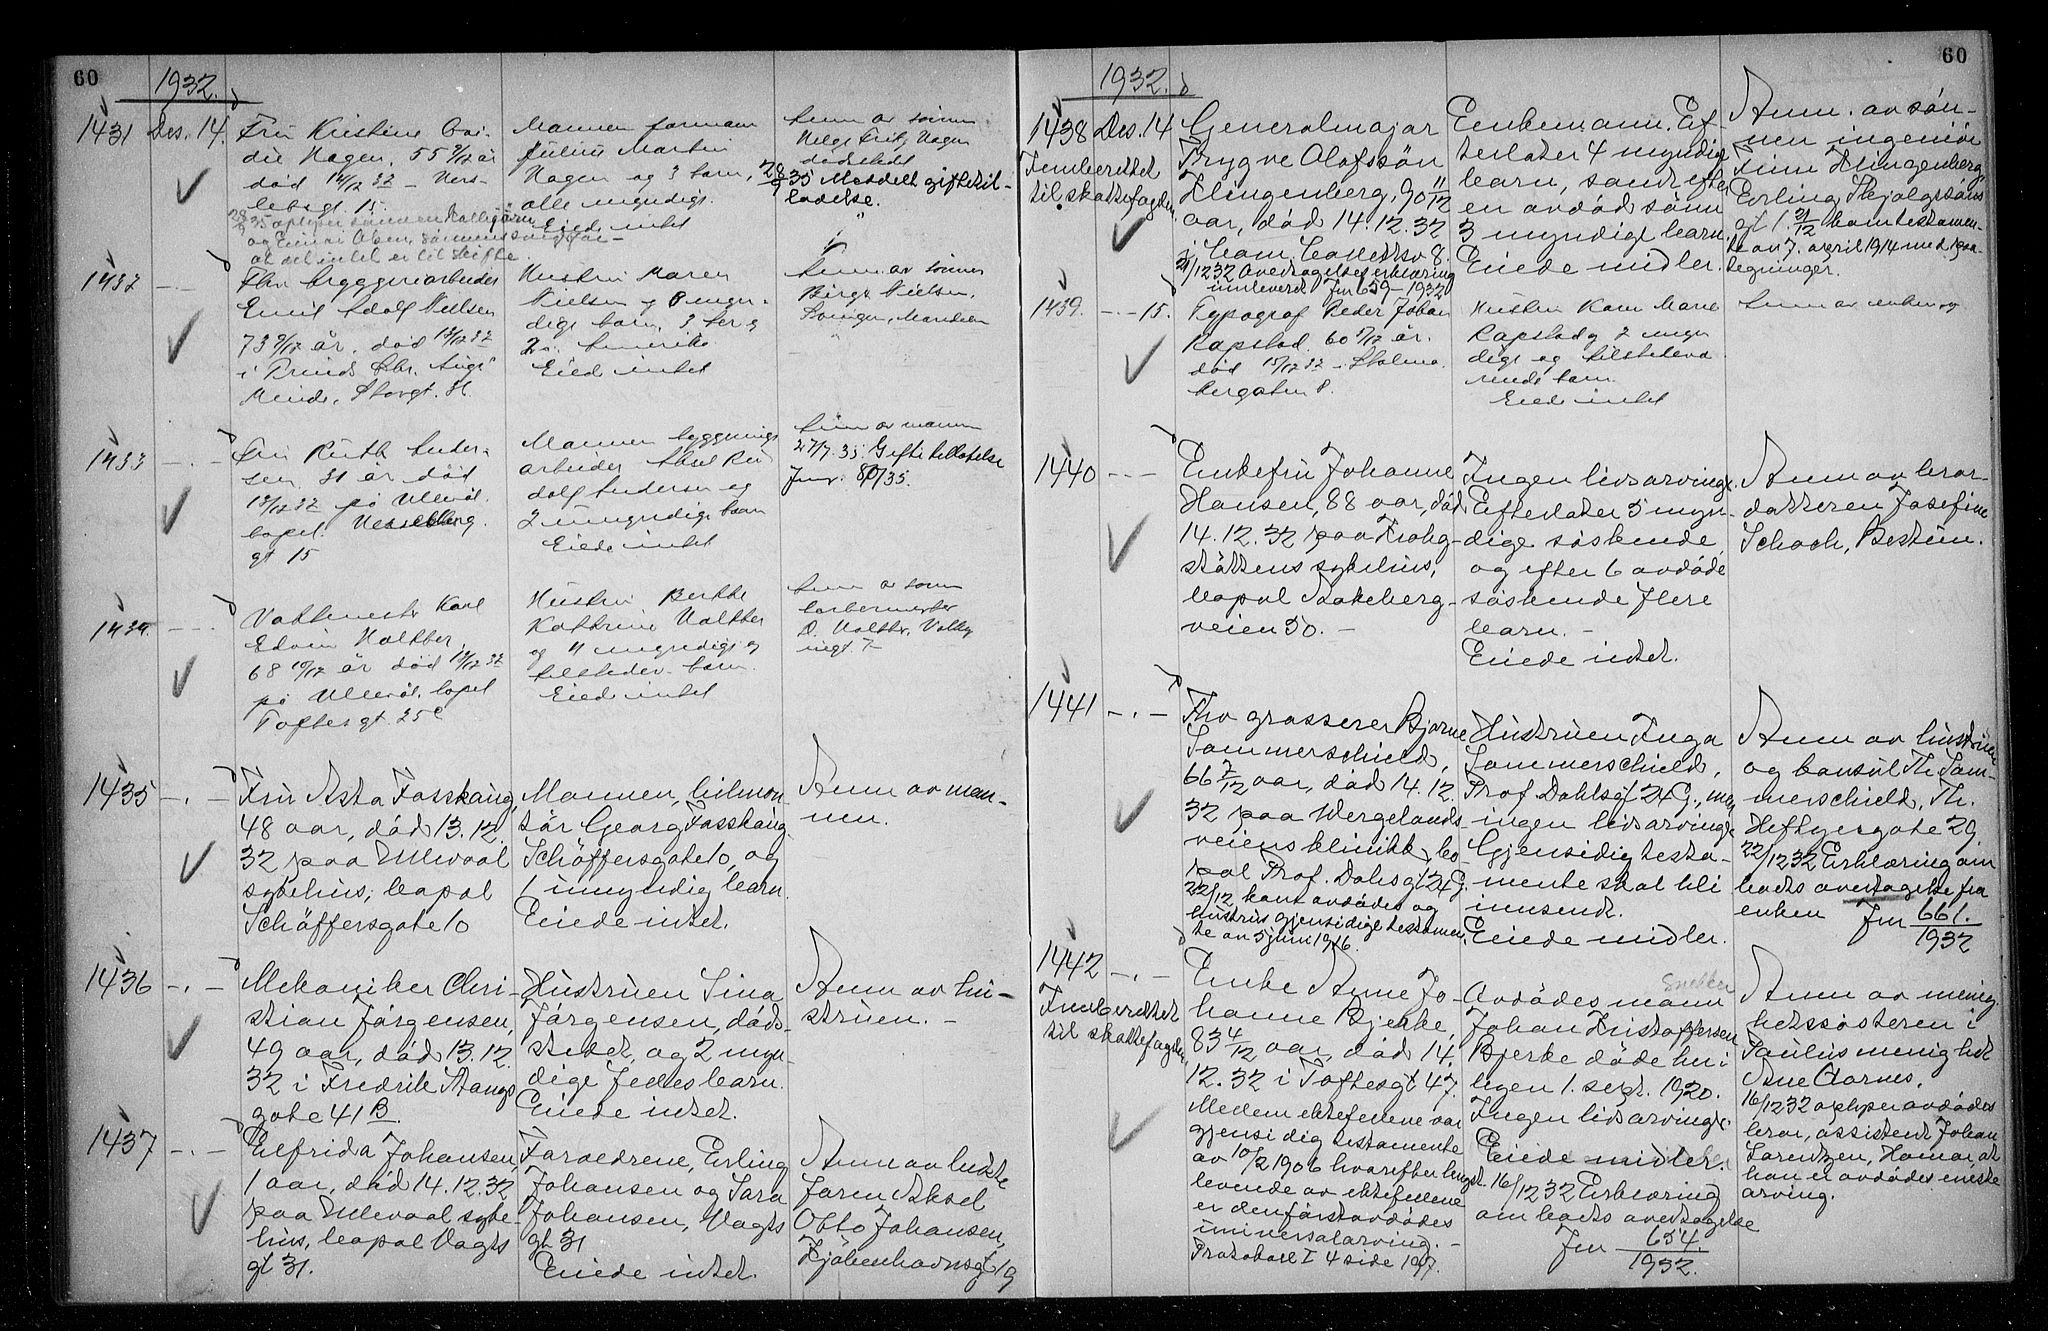 60
1932.
1431 Des. 14. Fru Kristine
Hagen, 55 9/12 år
død 12/12 32 –
gt. 15.
28/9 35 oplyser sønnen
og Einar Olsen,
at det intet er til skifte.
Mannen formann
Julius Martin
Hagen og 3 barn,
alle myndige.
Eied intet
Anm. av sønnen
Helge Fritz Hagen
dødsstedet
28/9 35 Meddelt giftetil-
ladelse.
1432 – . – Fhv. bryggeriarbeider
Emil Adolf Nielsen
73 9/12 år, død 13/12 32
i Prinds Chr. Augs
Minde, Storgt. 36.
Hustru Maren
Nielsen og 8 myn-
dige barn, 3 her og
i Amerika
Eied intet
Anm. av sønnen
Birger Nielsen,
1433 – . – Fru Ruth Ander-
sen, 31 år død
13/12 32 på Ullevål.
bopel
gt 15
Mannen bygnings
arbeider Aksel Ru
dolf Andersen og
2 umyndige barn
Eiede intet
Anm av mannen
27/7. 35. Giftetillatelse
Jnr. 80/35.
1434 – . – Vaktmester Karl
Edvin Walther,
68 10/12 år død 13/12 32
på Ullevål, bopel
Toftesgt. 25 c
Hustru Berthe
Kathrine Walther
og 4 myndige og
tilstedev. barn.
Eied intet
Anm av sønn
barbermester
O. Walther,
1435 – . – Fru Asta Fosshaug,
48 aar, död 13.12.
32 paa Ullevaal
sykehus, bopel
Schöffersgate 10
Mannen, bilmon-
tör Georg Fosshaug
Schöffersgate 10, og
1 umyndig barn
Eiede intet.
Anm av man-
nen.
1436 – . – Mekaniker Chri-
stian Jörgensen,
49 aar, död 13.12.
32 i Fredrik Stangs
gate 41 B.
Hustruen Sina
Jörgensen, döds-
stedet, og 2 myn-
dige fellesbarn.
Eiede intet.
Anm av hu-
struen. –
1437 – . – Elfrida Johansen,
1 aar, död 14.12.32
paa Ullevaal syke-
hus, bopal Vogts
gt 31.
Foreldrene, Erling
Johansen og Sara
Johansen, Vogts
gt 31
Eiede intet.
Anm av beste
faren Aksel
Otto Johansen,
Kjöbenhavnsgt 19
60
1932.
1438 Des. 14
Innberettet
til skattefogden
Generalmajor
Trygve Olafssön
Klingenberg, 90 11/12
aar, död 14.12.32
i Cam. Collettsv 8.
21/12 32 Overtagelseserklæring
innlevert Jnr 659 – 1932
Enkemann. Ef-
terlater 4 myndige
barn, samt efter
en avdöd sönn
3 myndige barn.
Eiede midler.
Anm. av sön-
nen ingeniör
Finn Klingenberg,
Erling Skjalgssöns
gt 1. 21/12 kom testamen-
te av 7. april 1914 med paa-
tegninger.
1439. – . – 15. Typograf Peder Johan
Rapstad 60 5/12 år.
død 15/12 32 – Holms
bergaten 8.
Hustru Karn Marie
Rapstad og 2 myn
dige og tilstedevæ
rende barn.
Eied intet
Anm av enken og
1440 – – – Enkefru Johanne
Hansen, 88 aar, död
14.12.32 paa Krohg-
stöttens sykehus,
bopal Aakeberg-
veien 50. –
Ingen livsarvinge.
Efterlater 5 myn-
dige söskende,
og efter 6 avdöde
söskende flere
barn. –
Eiede intet.
Anm av bror-
datteren Josefine
Schoch, Bestum.
1441 – . – Fhv grosserer Bjarne
Sommerschield,
66 7/12 aar, död 14.12.
32 paa Wergelands-
veiens klinikk, bo-
pal Prof. Dahlsgt 24 G.
22/12 kom avdödes og
hustrus gjensidige testamen-
te av 5 juni 1916.
Hustruen Inga
Sommerschield,
Prof. Dahlsgt 24 G., men
ingen livsarvinge
Gjensidig testa-
mente skal bli
innsendt.
Eiede midler.
Anm av hustruen
og konsul Th. Som-
merschield, Th.
Heftyesgate 29.
22/12 32 Erklæring om
boets overtagelse fra
enken Jnr 661.
1932
1442 – . –
Innberettet
til skattefogden
Enke Anne Jo-
hanne Bjerke,
83 4/12 aar, död 14.
12.32 i Toftesgt 47.
Mellem ektefellene var
gjensidig testamente
av 10/2 1906 hvorefter lengst
levende av ektefellene
er den förstavdödes
universalarving. –
Protokoll I 4 side 197.
Snekker
Avdödes mann
Johan Kristoffersen
Bjerke döde her i
byen 1. sept. 1920.
Ingen livsarvinge.
Eiede midler.
16/12 32 Erklæring
om boets overtagelse
Jnr 654.
1932.
Anm av menig-
hetssösteren i
Paulus menighet
Ane Aarnes.
16/12 32 oplyser avdödes
bror, assistent Johan
Lorentzen, Hamar, at
han er avdödes eneste
arving.